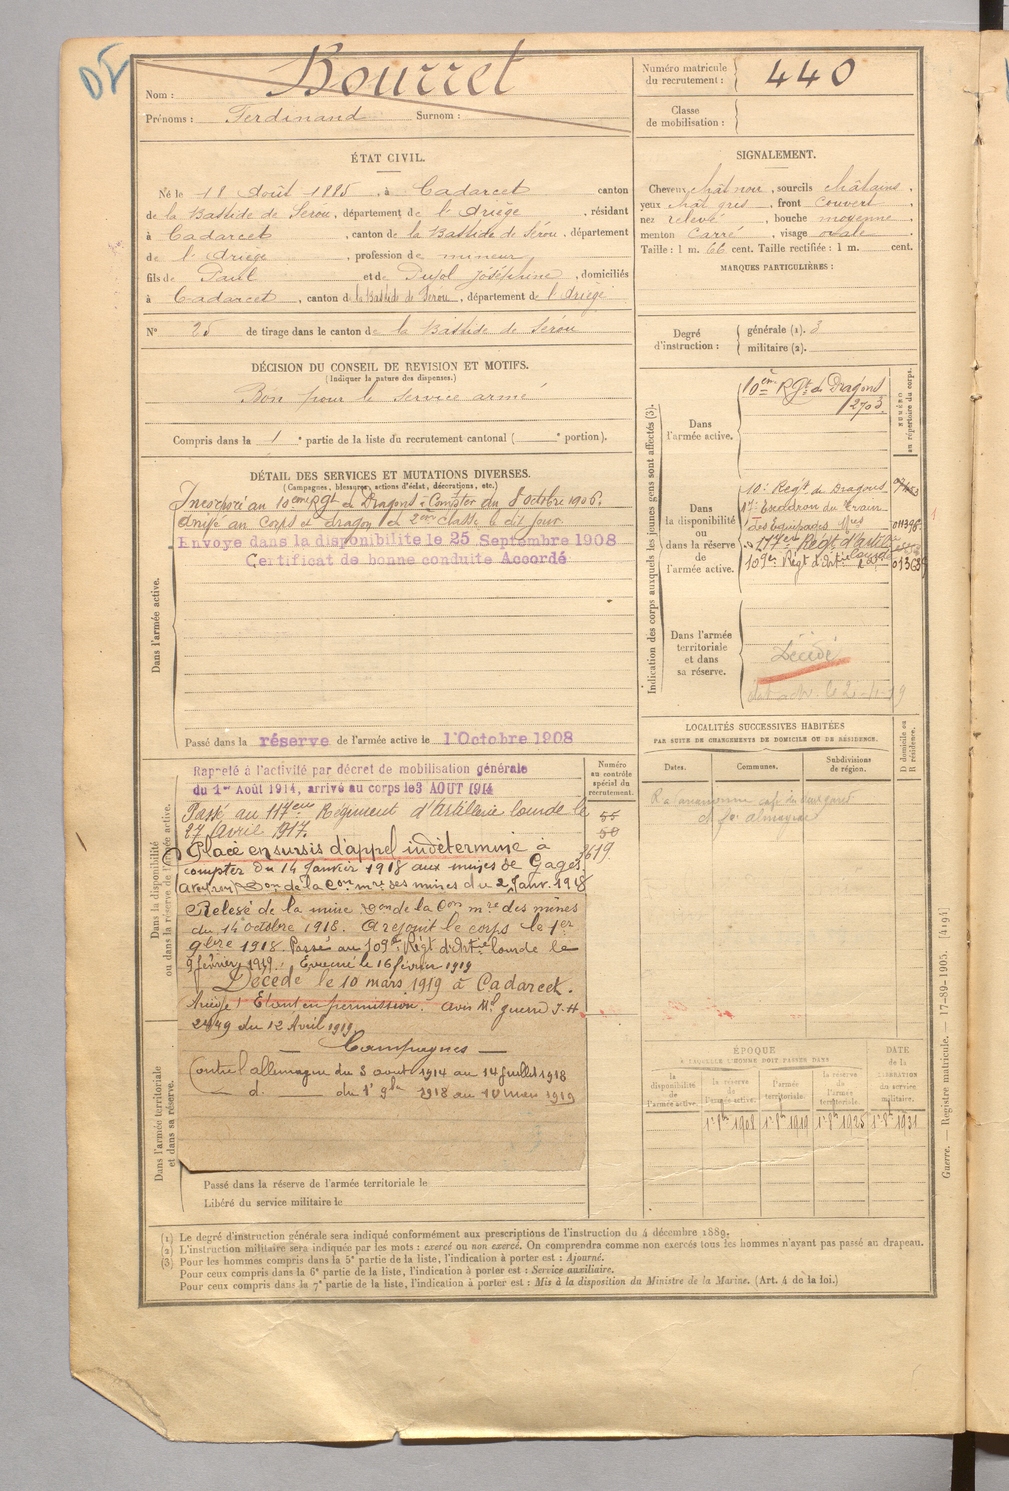 Nom : Bourret
Prénoms : Ferdinand Surnom :
Numéro matricule
du recrutement : 440
Classe
de mobilisation :
ÉTAT CIVIL.
Né le 18 Août 1885, à Cadarcet canton
de la Bastide de Sérou, département de l'Ariège, résidant
à Cadarcet, canton de la Bastide de Sérou, département
de l'Ariège, profession de mineur
fils de Paul et de Pujol Joséphine, domiciliés
à Cadarcet, canton de la Bastide de Sérou, département de l'Ariège
N° 25 de tirage dans le canton de la Bastide de Sérou
DÉCISION DU CONSEIL DE REVISION ET MOTIFS.
(Indiquer la nature des dispenses.)
Bon pour le service armé
Compris dans la 1e partie de la liste du recrutement cantonal ( e portion).
SIGNALEMENT.
Cheveux chât noir, sourcils châtains,
yeux chât gris, front couvert,
nez relevé, bouche moyenne,
menton carré, visage ovale.
Taille : 1 m. 66 cent. Taille rectifiée : 1 m. cent.
MARQUES PARTICULIÈRES :
Degré
d'instruction :
générale (1). 3
militaire (2).
DÉTAIL DES SERVICES ET MUTATIONS DIVERSES.
(Campagnes, blessures, actions d'éclat, décorations, etc.)
Incorporé au 10eme Rgt de Dragons à Compter du 8 octobre 1906.
Arrivé au corps et dragon de 2eme classe le dit jour.
Envoyé dans la disponibilité le 25 Septembre 1908
Certificat de bonne conduite Accordé
Dans l'armée active.
Passé dans la réserve de l'armée active le 1 Octobre 1908
Indication des corps auxquels les jeunes gens sont affectés (3).
NUMÉRO
au répertoire du corps.
Dans
l'armée active.
10eme Rgt de Dragons
2703
Dans
la disponibilité
ou
dans la réserve
de
l'armée active.
10e Régt de Dragons
17e Escadron du Train
des Equipages Mres
117eme Régt d'artill
109e Régt d'Artie lourde
Dans l'armée
territoriale
et dans
sa réserve.
Décédé
LOCALITÉS SUCCESSIVES HABITÉES
PAR SUITE DE CHANGEMENTS DE DOMICILE OU DE RÉSIDENCE.
Dates.
Communes.
Subdivisions
de région.
D domicile ou
R résidence.
Dans la disponibilité
ou dans la réserve de l'armée active.
Rappelé à l'activité par décret de mobilisation générale
du 1er Août 1914, arrivé au corps le 3 AOUT 1914
Passé au 117eme Régiment d'Artillerie lourde le
27 Avril 1917.
Placé en sursis d'appel indéterminé à
compter du 14 Janvier 1918 aux mines de Gages
(Aveyron) Don de la Con mre des mines du 2 Janv. 1918
Relevé de la mine Don de la Con mre des mines
du 14 octobre 1918. A rejoint le corps le 1er
9bre 1918. Passé au 109e Régt d'Artie lourde le
9 février 1919. Evacué le 16 février 1919
Décédé le 10 mars 1919 à Cadarcet.
Ariège Etant en permission. Avis Ml guerre
du 12 Avril 1919
Campagnes
Contre l'allemagne du 3 août 1914 au 14 juillet 1918
d° du 1er 9bre 1918 au 10 mars 1919
Numéro
au contrôle
spécial du
recrutement.
55
50
3619
Dans l'armée territoriale
et dans sa réserve.
Passé dans la réserve de l'armée territoriale le
Libéré du service militaire le
ÉPOQUE
À LAQUELLE L'HOMME DOIT PASSER DANS
la
disponibilité
de
l'armée active.
la réserve
de
l'armée active.
l'armée
territoriale.
la réserve
de
l'armée
territoriale.
DATE
de la
LIBÉRATION
du service
militaire.
1er 8bre 1908
1er 8bre 1919
1er 8bre 1925
1er 8bre 1931
(1) Le degré d'instruction générale sera indiqué conformément aux prescriptions de l'instruction du 4 décembre 1889.
(2) L'instruction militaire sera indiquée par les mots : exercé ou non exercé. On comprendra comme non exercés tous les hommes n'ayant pas passé au drapeau.
(3) Pour les hommes compris dans la 5e partie de la liste, l'indication à porter est : Ajourné.
Pour ceux compris dans la 6e partie de la liste, l'indication à porter est : Service auxiliaire.
Pour ceux compris dans la 7e partie de la liste, l'indication à porter est : Mis à la disposition du Ministre de la Marine. (Art. 4 de la loi.)
Guerre. — Registre matricule. — 17-89-1905. [4194]